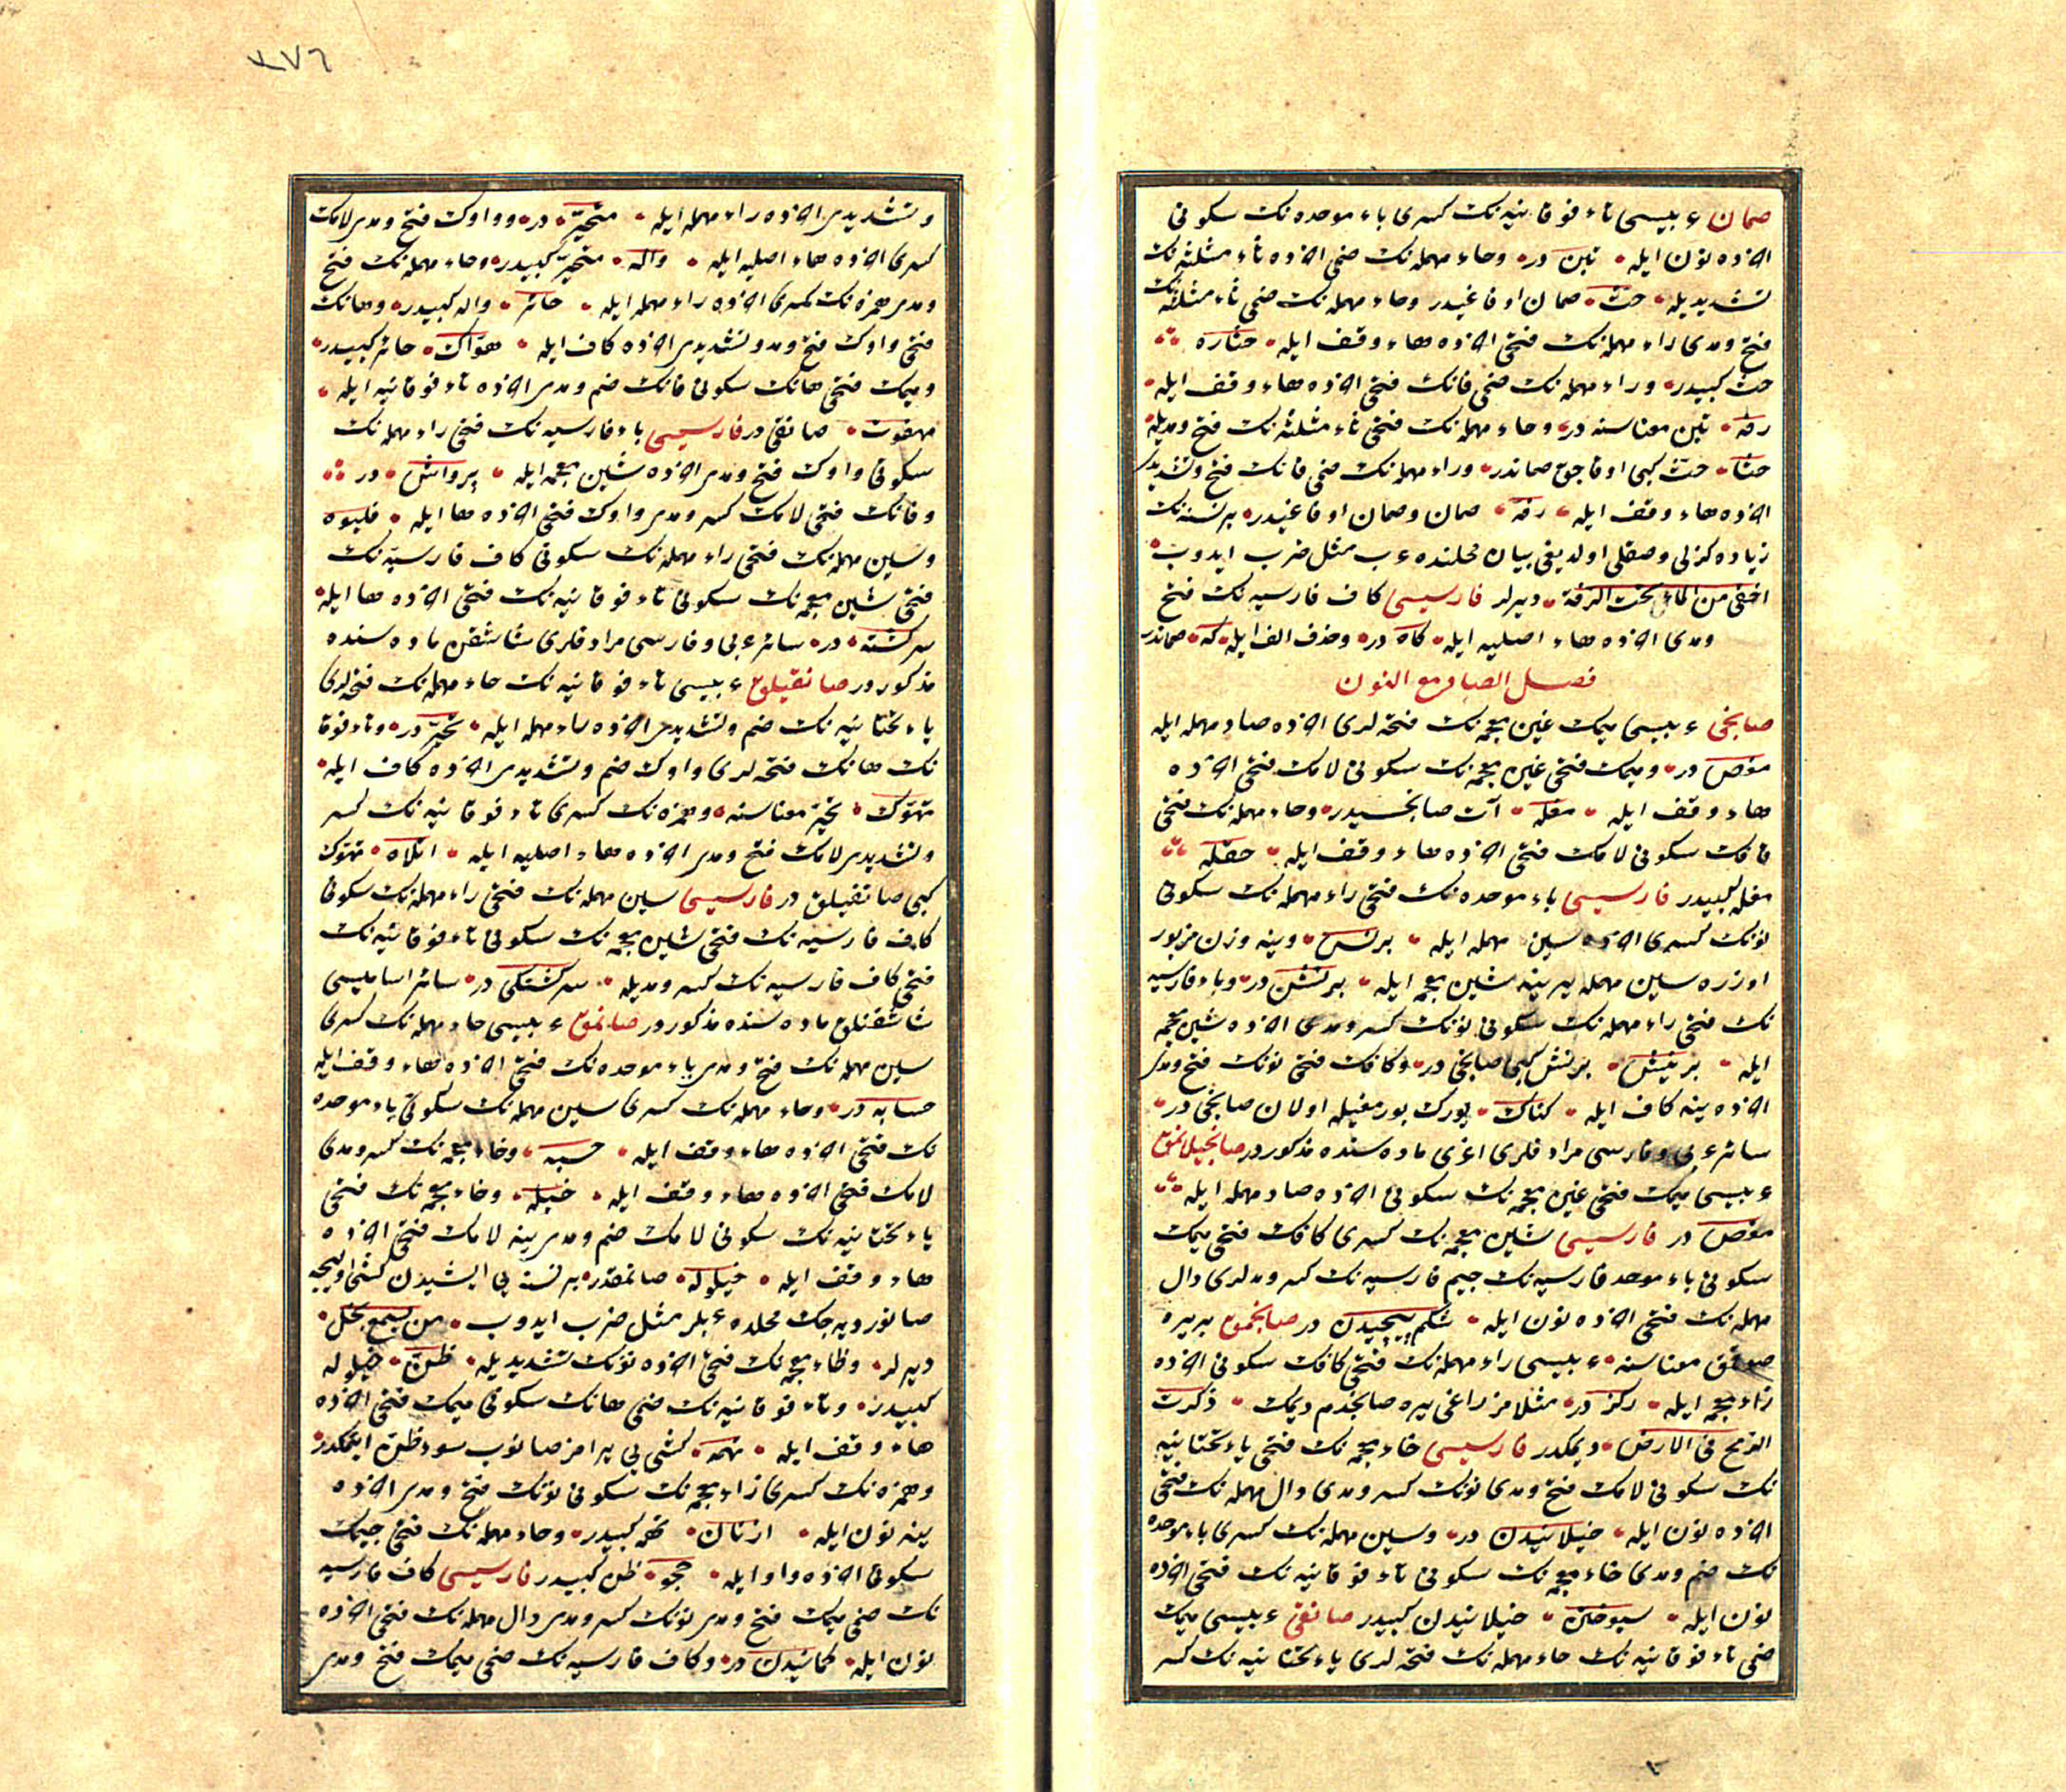 صمان عربيسى تاء فوقانيه نك كسرى باء موحده نك سكونى
آخرده نون ايله تبن در وحاء مهمله نك ضمى آخرده ثاء مثلثه نك
تشديديله حث صمان اوفاغيدر وحاء مهمله نك ضمى ثاء مثلثه نك
فتح ومدى راء مهمله نك فتحى آخرده هاء وقف ايله حثاره
حث كبيدر وراء مهمله نك ضمى فانك فتحى آخرده هاء وقف ايله
رفه تبن معناسنه در وحاء مهمله نك فتحى ثاء مثلثه نك فتح ومديله
حثا حث كبى اوفاجق صماندر وراء مهمله نك ضمى فانك فتح وتشديدى
آخرده هاء وقف ايله رفه صمان وصمان اوفاغيدر بر نسنه نك
زياده كزلى وصقلى اولديغى بيان محلنده عرب مثل ضرب ايدوب
اخفى من الماء تحت الرفة ديرلر فارسيسى كاف فارسيه نك فتح
ومدى آخرده هاء اصليه ايله كاه در وحذف الف ايله كه صماندر
فصل الصاد مع النون
صانجى عربيسى ميمك غين معجمه نك فتحه لرى آخرده صاد مهمله ايله
مغص در وميمك فتحى غين معجمه نك سكونى لامك فتحى آخرده
هاء وقف ايله مغله آت صانجيسيدر وحاء مهمله نك فتحى
قافك سكونى لامك فتحى آخرده هاء وقف ايله حقله
مغله كبيدر فارسيسى باء موحده نك فتحى راء مهمله نك سكونى
نونك كسرى آخرده سين مهمله ايله برنس وينه وزن مزبور
اوزره سين مهمله يرينه شين معجمه ايله برنش در وباء فارسيه
نك فتحى راء مهمله نك سكونى نونك كسر ومدى آخرده شين معجمه
ايله پرنيش برنش كبى صانجى در وكافك فتحى نونك فتح ومدى
آخرده ينه كاف ايله كناك يورك بورمغيله اولان صانجى در
سائر عربى وفارسى مرادفلرى اغرى ماده سنده مذكوردر صانجيلانمق
عربيسى ميمك فتحى غين معجمه نك سكونى آخرده صاد مهمله ايله
مغص در فارسيسى شين معجمه نك كسرى كافك فتحى ميمك
سكونى باء موحده فارسيه نك جيم فارسيه نك كسر ومدلرى دال
مهمله نك فتحى آخرده نون ايله شكم پيچيدن در صانجمق بر يره
صوقمق معناسنه عربيسى راء مهمله نك فتحى كافك سكونى آخرده
زاء معجمه ايله ركز در مثلا مزراغى يره صانجدم ديمك ركزت
الرمح فى الارض ديمكدر فارسيسى خاء معجمه نك فتحى ياء تحتانيه
نك سكونى لامك فتح ومدى نونك كسر ومدى دال مهمله نك فتحى
آخرده نون ايله خيلانيدن در وسين مهمله نك كسرى باء موحده
نك ضم ومدى خاء معجمه نك سكونى تاء فوقانيه نك فتحى آخرده
نون ايله سپوختن خيلانيدن كبيدر صانقى عربيسى ميمك
ضمى تاء فوقانيه نك حاء مهمله نك فتحه لرى ياء تحتانيه نك كسر
وتشديدى آخرده راء مهمله ايله متحير در وواوك فتح ومدى لامك
كسرى آخرده هاء اصليه ايله واله متحير كبيدر وحاء مهمله نك فتح
ومدى همزه نك كسرى آخرده راء مهمله ايله حائر واله كبيدر وهانك
فتحى واوك فتح ومد وتشديدى آخرده كاف ايله هواك حائر كبيدر
وميمك فتحى هانك سكونى فانك ضم ومدى آخرده تاء فوقانيه ايله
مهفوت صانقى در فارسيسى باء فارسيه نك فتحى راء مهمله نك
سكونى واوك فتح ومدى آخرده شين معجمه ايله پرواش در
وفانك فتحى لامك كسر ومدى واوك فتحى آخرده ها ايله فليوه
وسين مهمله نك فتحى راء مهمله نك سكونى كاف فارسيه نك
فتحى شين معجمه نك سكونى تاء فوقانيه نك فتحى آخرده ها ايله
سركشته در سائر عربى وفارسى مرادفلرى شاشقن ماده سنده
مذكوردر صانقيلق عربيسى تاء فوقانيه نك حاء مهمله نك فتحه لرى
ياء تحتانيه نك ضم وتشديدى آخرده راء مهمله ايله تحير در وتاء فوقا
نك هانك فتحه لرى واوك ضم وتشديدى آخرده كاف ايله
تهوك تحير معناسنه وهمزه نك كسرى تاء فوقانيه نك كسر
وتشديدى لامك فتح ومدى آخرده هاء اصليه ايله اتلاه تهوك
كبى صانقيلق در فارسيسى سين مهمله نك فتحى راء مهمله نك سكونى
كاف فارسيه نك فتحى شين معجمه نك سكونى تاء فوقانيه نك
فتحى كاف فارسيه نك كسر ومديله سركشتكى در سائر اساميسى
شاشقنلق ماده سنده مذكوردر صانمق عربيسى حاء مهمله نك كسرى
سين مهمله نك فتح ومدى باء موحده نك فتحى آخرده هاء وقف ايله
حسابه در وحاء مهمله نك كسرى سين مهمله نك سكونى باء موحده
نك فتحى آخرده هاء وقف ايله حسبه وخاء معجمه نك كسر ومدى
لامك فتحى آخرده هاء وقف ايله خيله وخاء معجمه نك فتحى
ياء تحتانيه نك سكونى لامك ضم ومدى ينه لامك فتحى آخرده
هاء وقف ايله خيلوله صانمقدر بر نسنه يى ايشيدن كشى اويله جه
صانور ديه جك محلده عربلر مثل ضرب ايدوب من يسمع يخل
ديرلر وظاء معجمه نك فتحى آخرده نونك تشديديله ظن خيلوله
كبيدر وتاء فوقانيه نك ضمى هانك سكونى ميمك فتحى آخرده
هاء وقف ايله تهمه كشى يى يرامز صانوب سوء ظن ايتمكدر
وهمزه نك كسرى زاء معجمه نك سكونى نونك فتح ومدى آخرده
ينه نون ايله ازنان تهمه كبيدر وحاء مهمله نك فتحى جيمك
سكونى آخرده واو ايله حجو ظن كبيدر فارسيسى كاف فارسيه
نك ضمى ميمك فتح ومدى نونك كسر ومدى دال مهمله نك فتحى آخرده
نون ايله كمانيدن در وكاف فارسيه نك ضمى ميمك فتح ومدى